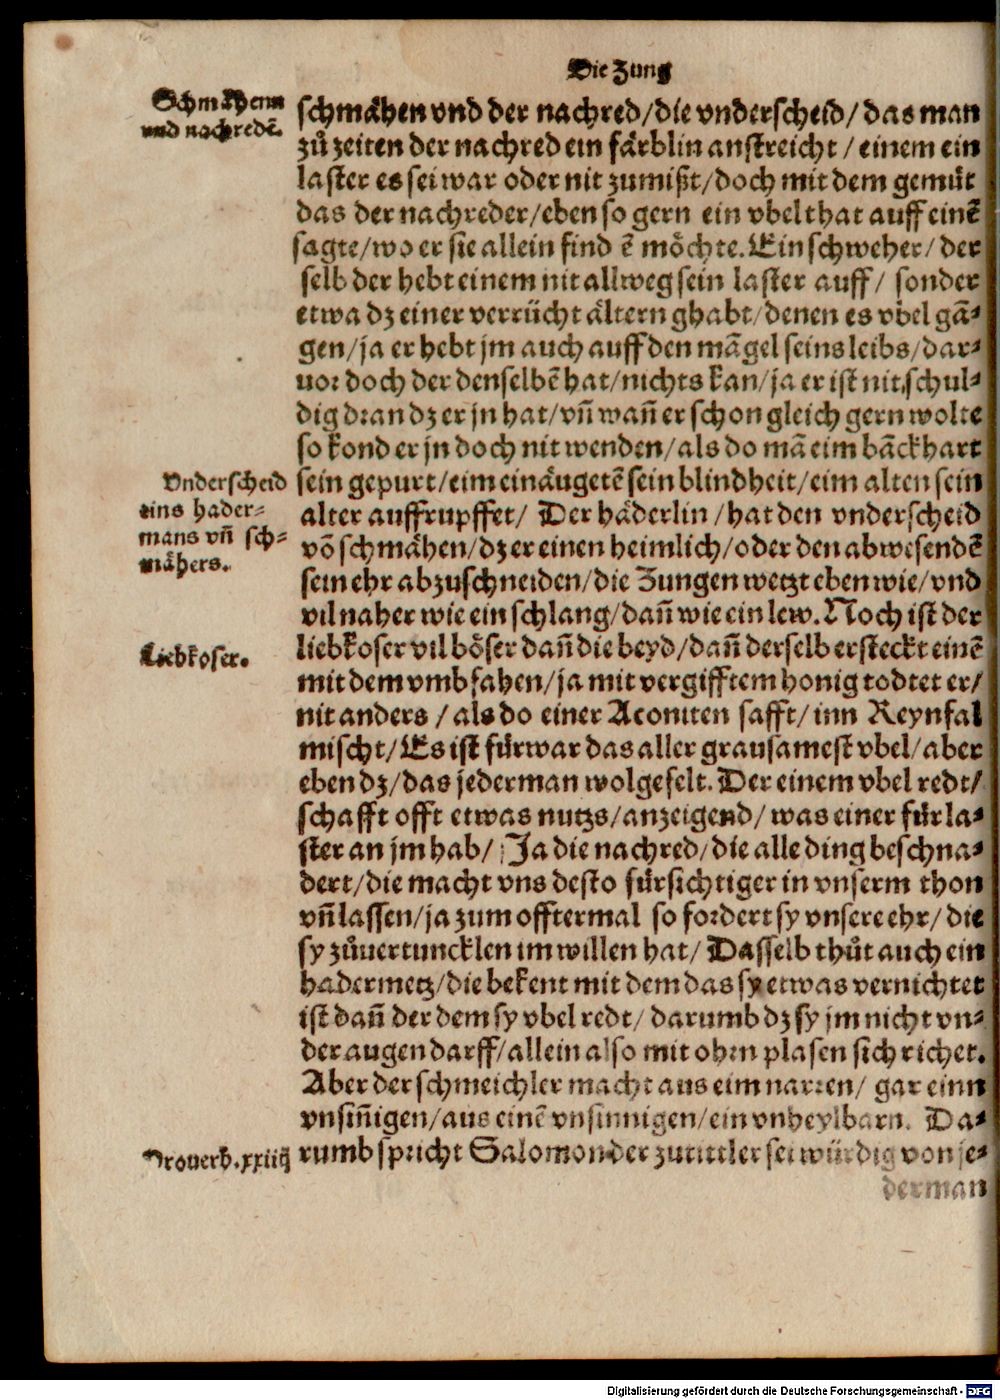 Die Zung
Schmähenn
vnd nachredē.
schmähen vnd der nachred/die vnderscheid/das man
zů zeiten der nachred ein färblin anstreicht/einem ein
laster es sei war oder nit zumißt/doch mit dem gemüt
das der nachreder/eben so gern ein vbelthat auff einē
sagte/wo er sie allein find ē möchte. Ein schweher/der
selb der hebt einem nit allweg sein laster auff/ sonder
etwa dz einer verrücht ältern ghabt/denen es vbel gā⸗
gen/ja er hebt jm auch auff den māgel seins leibs/dar⸗
uor doch der denselbē hat/nichts kan/ja er ist nit schul⸗
dig dran dz er jn hat/vn̄ wan̄ er schon gleich gern wolte
so kond er jn doch nit wenden/als do mā eim bāckhart
Vnderscheid
eins hader⸗
mans vn̄ sch⸗
mähers.
sein gepurt/eim einäugetē sein blindheit/eim alten sein
alter auffrupffet/ Der häderlin/hat den vnderscheid
vō schmähen/dz er einen heimlich/oder den abwesendē
sein ehr abzuschneiden/die Zungen wetzt eben wie/vnd
vil naher wie ein schlang/dan̄ wie ein lew. Noch ist der
Liebkoser.
liebkoser vil böser dan̄ die beyd/dan̄ derselb ersteckt einē
mit dem vmbfahen/ja mit vergifftem honig todtet er/
nit anders/als do einer Aconiten safft/inn Reynfal
mischt/Es ist fürwar das aller grausamest vbel/aber
eben dz/das jederman wolgefelt. Der einem vbel redt/
schafft offt etwas nutzs/anzeigend/was einer für la⸗
ster an jm hab/ Ja die nachred/die alle ding beschna⸗
dert/die macht vns desto fürsichtiger in vnserm thon
vn̄ lassen/ja zum offtermal so fordert sy vnsere ehr/die
sy zůuertuncklen im willen hat/ Dasselb thůt auch ein
hadermetz/die bekent mit dem das sy etwas vernichtet
ist dan̄ der dem sy vbel redt/ darumb dz sy jm nicht vn⸗
der augen darff/allein also mit ohrn plasen sich richet.
Aber der schmeichler macht aus eim narren/ gar einn
vnsin̄igen/aus einē vnsinnigen/ein vnheylbarn. Da⸗
Prouerb.xxiiij
rumb spricht Salomon der zutittler sei würdig von je⸗
derman
Digitalisierung gefördert durch die Deutsche Forschungsgemeinschaft - DFG